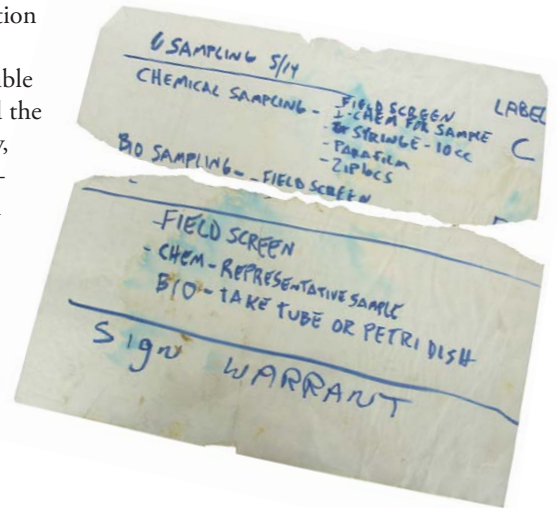 tion
ble
l the
6 SAMPLING 5/14
CHEMICAL SAMPLING - -FIELD SCREEN
I-CHEM FOR SAMPLE
SYRINGE - 10cc
- PARAFILM
- ZIPLOCS
LABEL
C
BIO SAMPLING - - FIELD SCREEN
-FIELD SCREEN
- CHEM - REPRESENTATIVE SAMPLE
BIO - TAKE TUBE OR PETRI DISH
Sign WARRANT